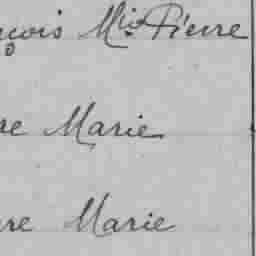 çois M^ie Pierre
re Marie
re Marie